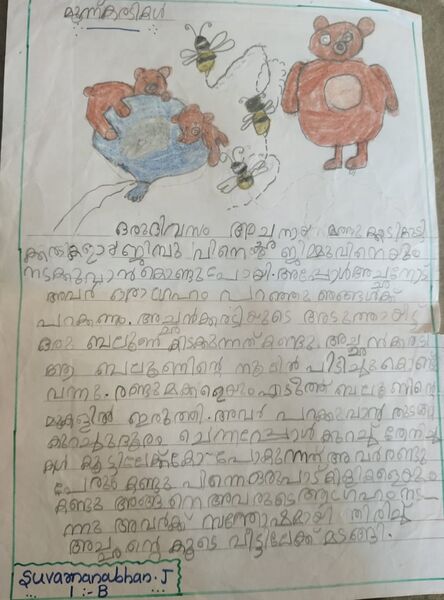 മൂന്ന് കരടികൾ
ഒരുദിവസം അച്ഛനും കുട്ടി
കരടികളായജിമ്പു പിന്നെ ജിമ്മുവിനെയും
നടക്കുവാൻ കൊണ്ടുപോയി. അപ്പോൾ അച്ഛനോട്
അവർ ഒരാഗ്രഹം പറഞ്ഞു ഞങ്ങൾക്ക്
പറക്കണം. അച്ഛൻകരടിയുടെ അടുത്തായിട്ട്
ഒരു ബലൂൺ കിടക്കുന്നത് കണ്ടു. അച്ഛൻകരടി
ആ ബലൂണിന്റെ നൂലിൽ പിടിച്ചുകൊണ്ട്
വന്നു. രണ്ടുമക്കളെയും എടുത്ത് ബലൂണിന്റെ
മുകളിൽ ഇരുത്തി. അവർ പറക്കുവാൻ തുടങ്ങി
കുറച്ചുദൂരം ചെന്നപ്പോൾ കുറച്ച് തേനീച്ച
കൾ കൂട്ടിലേക്ക് പോകുന്നത് അവർ രണ്ടു
പേരും കണ്ടു പിന്നെ ഒരുപാട് കിളികളെയും
കണ്ടു അങ്ങനെ അവരുടെ ആഗ്രഹം നട
ന്നു അവർക്ക് സന്തോഷമായി തിരിച്ച്
അച്ഛന്റെ കൂടെ വീട്ടിലേക്ക് മടങ്ങി.
Suvarnanabhan. J
I :- B